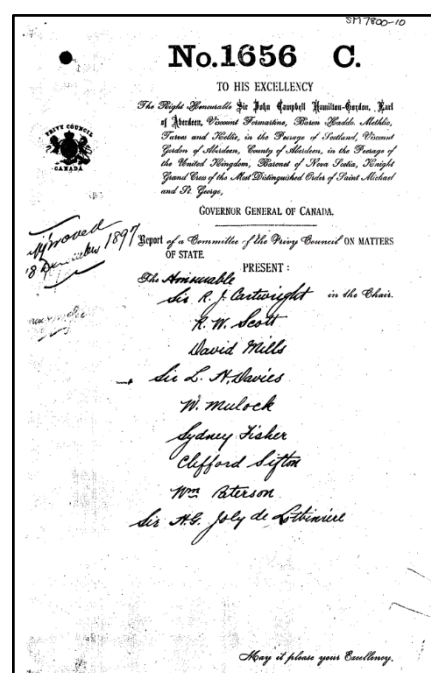 SM7800-10
No.1656 C.
TO HIS EXCELLENCY
The Right Honourable Sir John Campbell Hamilton-Gordon, Earl
of Aberdeen, Viscount Formartine, Baron Haddo, Methlic,
Tarves and Kellie, in the Peerage of Scotland, Viscount
Gordon of Aberdeen, County of Aberdeen, in the Peerage of
the United Kingdom, Baronet of Nova Scotia, Knight
Grand Cross of the Most Distinguished Order of Saint Michael
and St. George,
PRIVY COUNCIL
CANADA
GOVERNOR GENERAL OF CANADA.
Approved
18 December 1897
Report of a Committee of the Privy Council ON MATTERS
OF STATE.
PRESENT:
The Honourable
Sir R. J. Cartwright in the Chair.
R. W. Scott
David Mills
Sir L. H. Davies
W. Mulock
Sydney Fisher
Clifford Sifton
Wm Paterson
Sir H.G. Joly de Lotbiniere
May it please your Excellency.